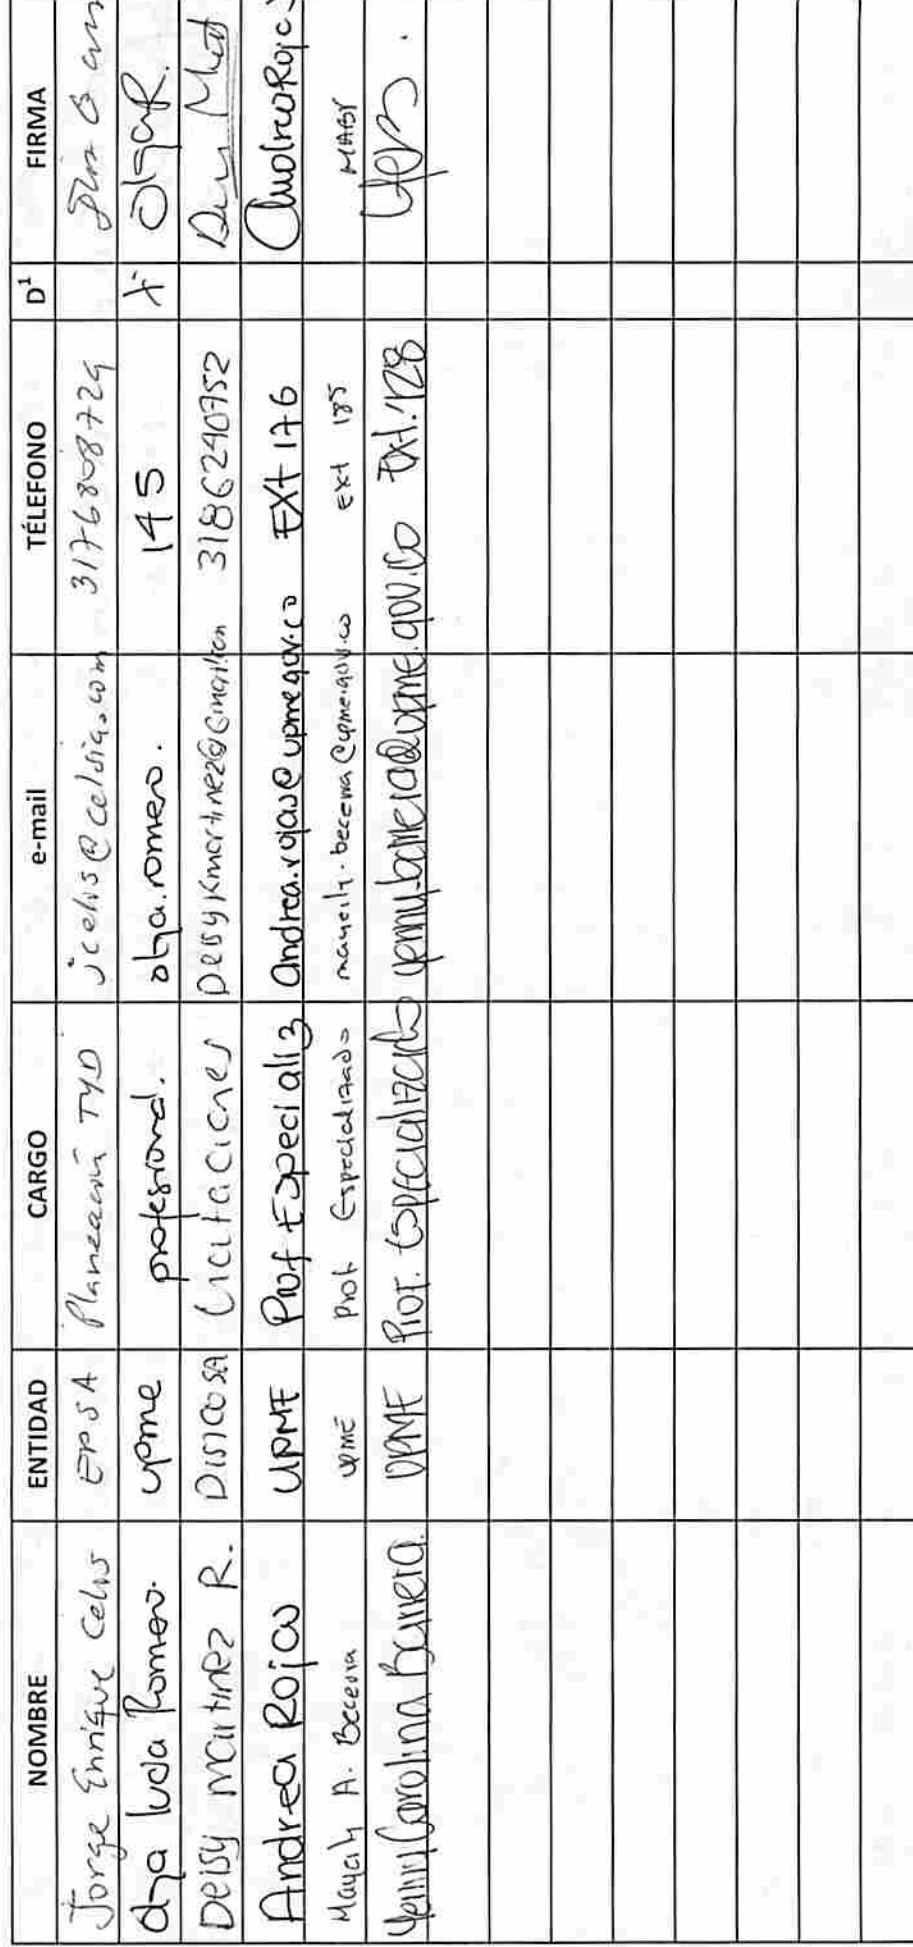 NOMBRE ENTIDAD CARGO e-mail TÉLEFONO D¹ FIRMA
Jorge Enrique Celis EPSA Planeación TYD jcelis@celsia.com
Olga Lucia Romero. upme profesional. olga.romero. 145 X OlgaR.
Deisy Martinez R. DISICO SA Licitaciones 3186240752
Andrea Rojas UPME Prof Especializ andrea.rojas@upme.gov.co EXT 176
A. Becerra UPME Prof Especializado ext 185 MABY
Yenny Carolina Barrera. UPME Prof. Especializado yenny.barrera@upme.gov.co Ext. 128